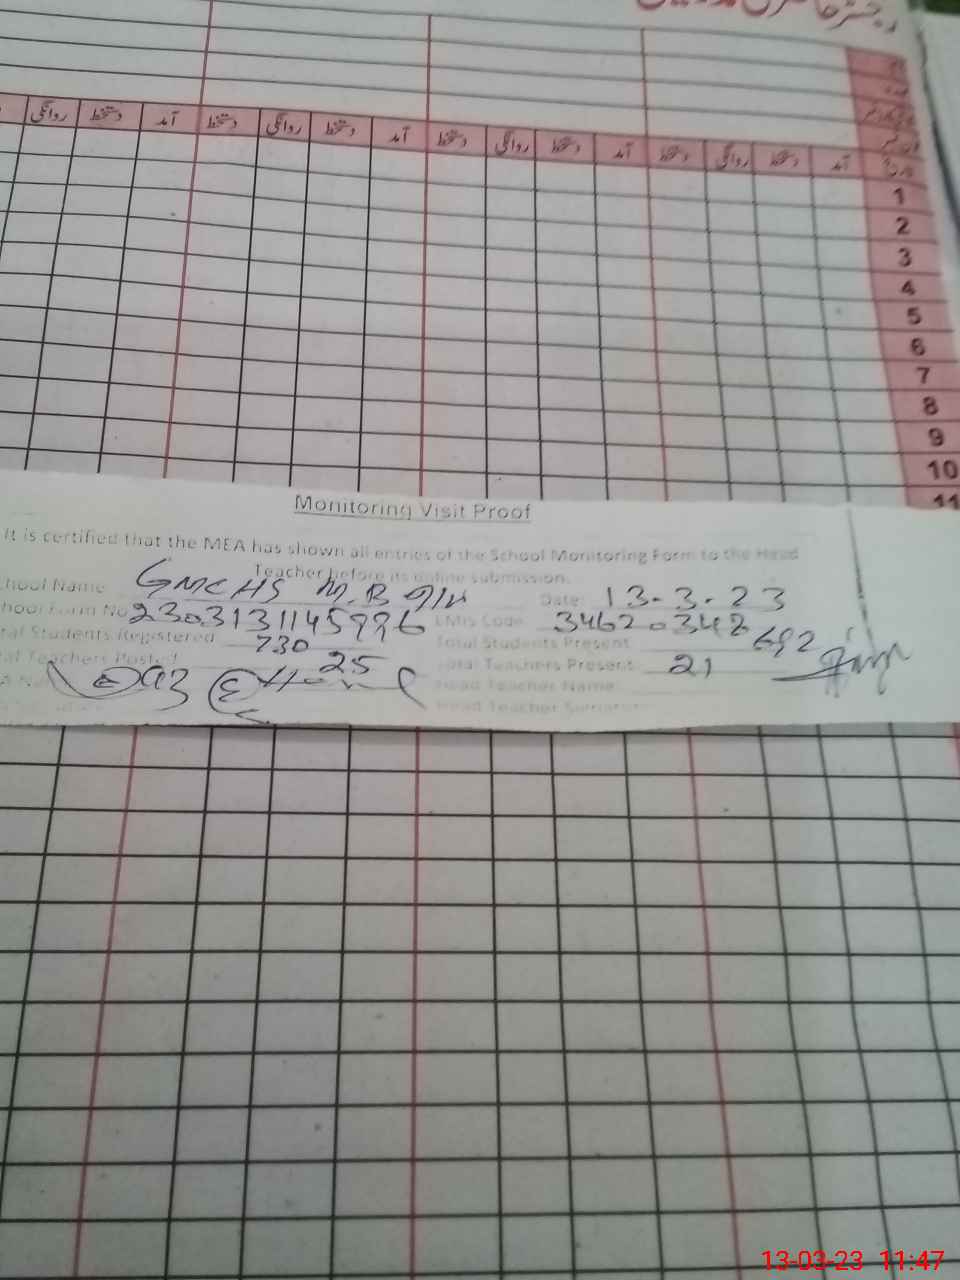 رجسٹر حاضری مدرسین
آمد دستخط روانگی دستخط آمد دستخط روانگی دستخط آمد دستخط روانگی دستخط آمد دستخط روانگی
1
2
3
4
5
6
7
8
9
10
11
Monitoring Visit Proof
It is certified that the MEA has shown all entries of the School Monitoring Form to the Head
Teacher before its online submission.
chool Name GMCHS M.B Date: 13-3-23
hool Form No 2303131145996 EMIS Code 34620348
tal Students Registered 730 Total Students Present 692
tal Teachers Posted 25 Total Teachers Present 21
Head Teacher Name
Head Teacher
13-03-23 11:47